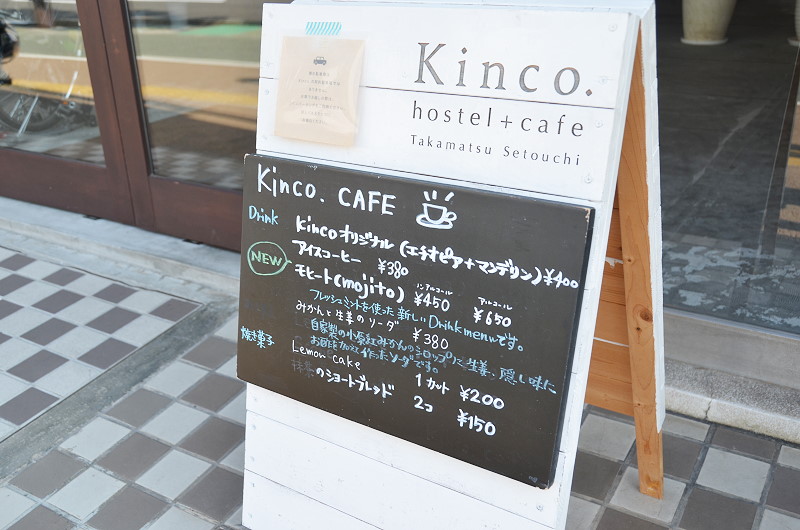 Kinco.
hostel+cafe
Takamatsu Setouchi
Kinco. CAFE
Drink
Kincoオリジナル(エチオピア+マンデリン) ¥400
アイスコーヒー ¥380
NEW
モヒート(mojito) ノンアルコール ¥450 アルコール ¥650
フレッシュミントを使った新しいDrink menuです。
みかんと生姜のソーダ ¥380
自家製の小原紅みかんのシロップに生姜、隠し味に
お酢を加えて作ったソーダです。
焼き菓子
Lemon cake 1カット ¥200
抹茶のショートブレッド 2コ ¥150